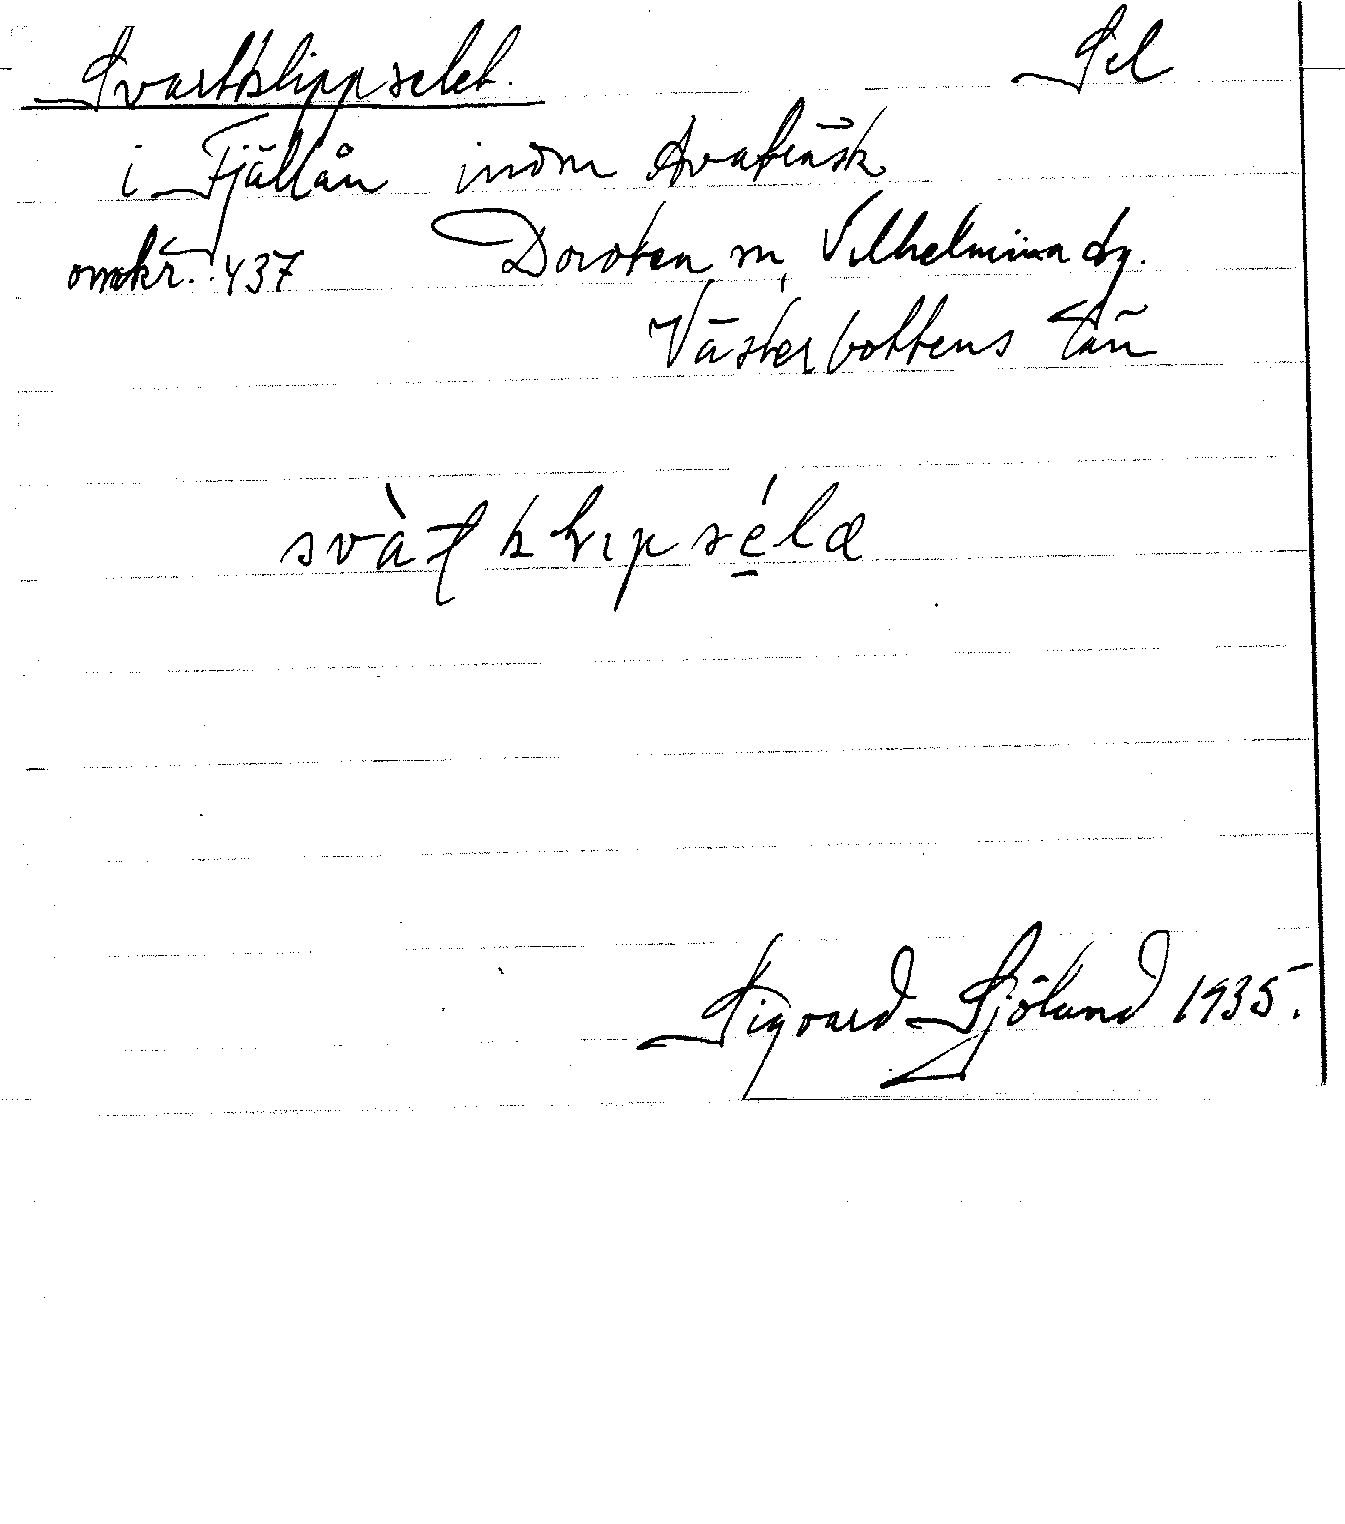 Svartklippselet. Sel
i Fjällån inom Avaträsk
omkr. 437 Dorotea m, Vilhelmina dg.
Västerbottens län
svàt klɩpsélæ
Sigvard Sjöland 1935.